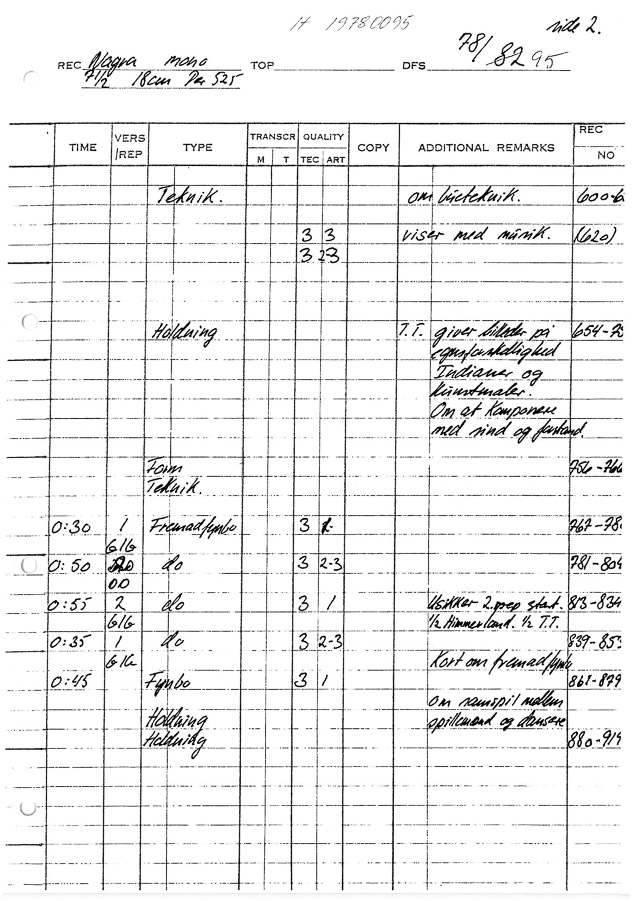 H 19780095
side 2.
REC Nagra mono TOP DFS 78/8295
7 1/2 18cm Per 525
TIME VERS/REP TYPE TRANSCR M T QUALITY TEC ART COPY ADDITIONAL REMARKS REC NO
Teknik. om bueteknik. 600-6
3 3 viser med musik. (620)
3 2-3
Holdning T.T. giver billeder på 654-75
egnsforskellighed
Indianer og
Kunstmaler.
Om at komponere
med sind og forstand.
Form 756-766
Teknik.
0:30 1 Fremadfynbo 3 1 767-780
GIG
0:50 do 3 2-3 781-804
00
0:55 2 do 3 1 Usikker 2.rep start. 813-834
GIG 1/2 Himmerland. 1/2 T.T.
0:35 1 do 3 2-3 839-853
GIG Kort om fremadfynbo
0:45 Fynbo 3 1 861-879
om samspil mellem
Holdning spillemand og dansere
Holdning 880-919